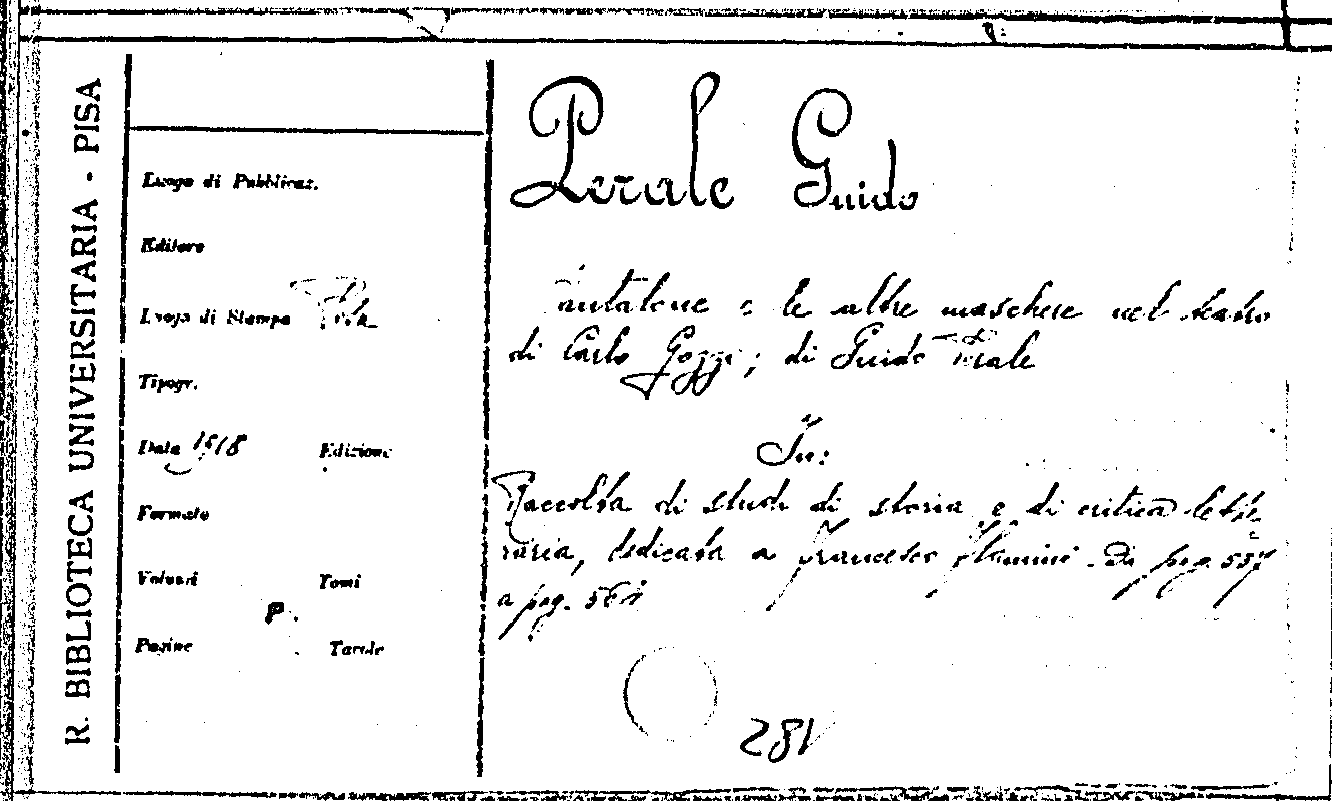 R. BIBLIOTECA UNIVERSITARIA - PISA
Luogo di Pubblicaz.
Editore
Luogo di Stampa Pisa
Tipogr.
Data 1918 Edizione
Formato
Volumi Tomi
P.
Pagine Tavole
Perale Guido
Pantalone e le altre maschere nel teatro
di Carlo Gozzi; di Guido Perale
In:
Raccolta di studi di storia e di critica lette-
raria, dedicata a Francesco Flamini. Da pag. 557
a pag.